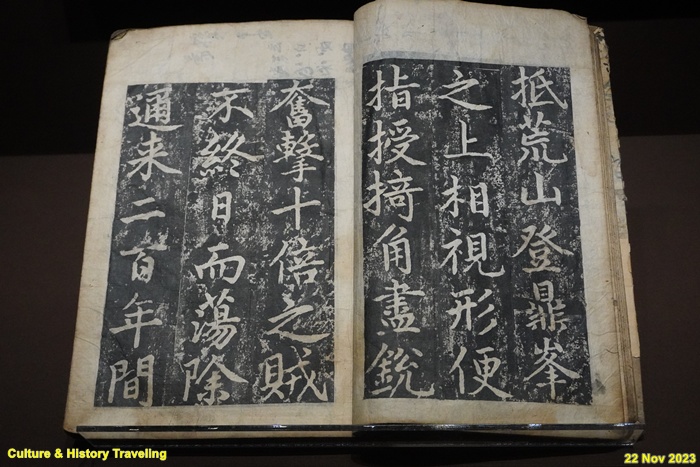 抵荒山登鼎峯
之上相視形便
指授掎角盡銳
奮擊十倍之賊
不終日而蕩除
通来二百年間
Culture & History Traveling
22 Nov 2023